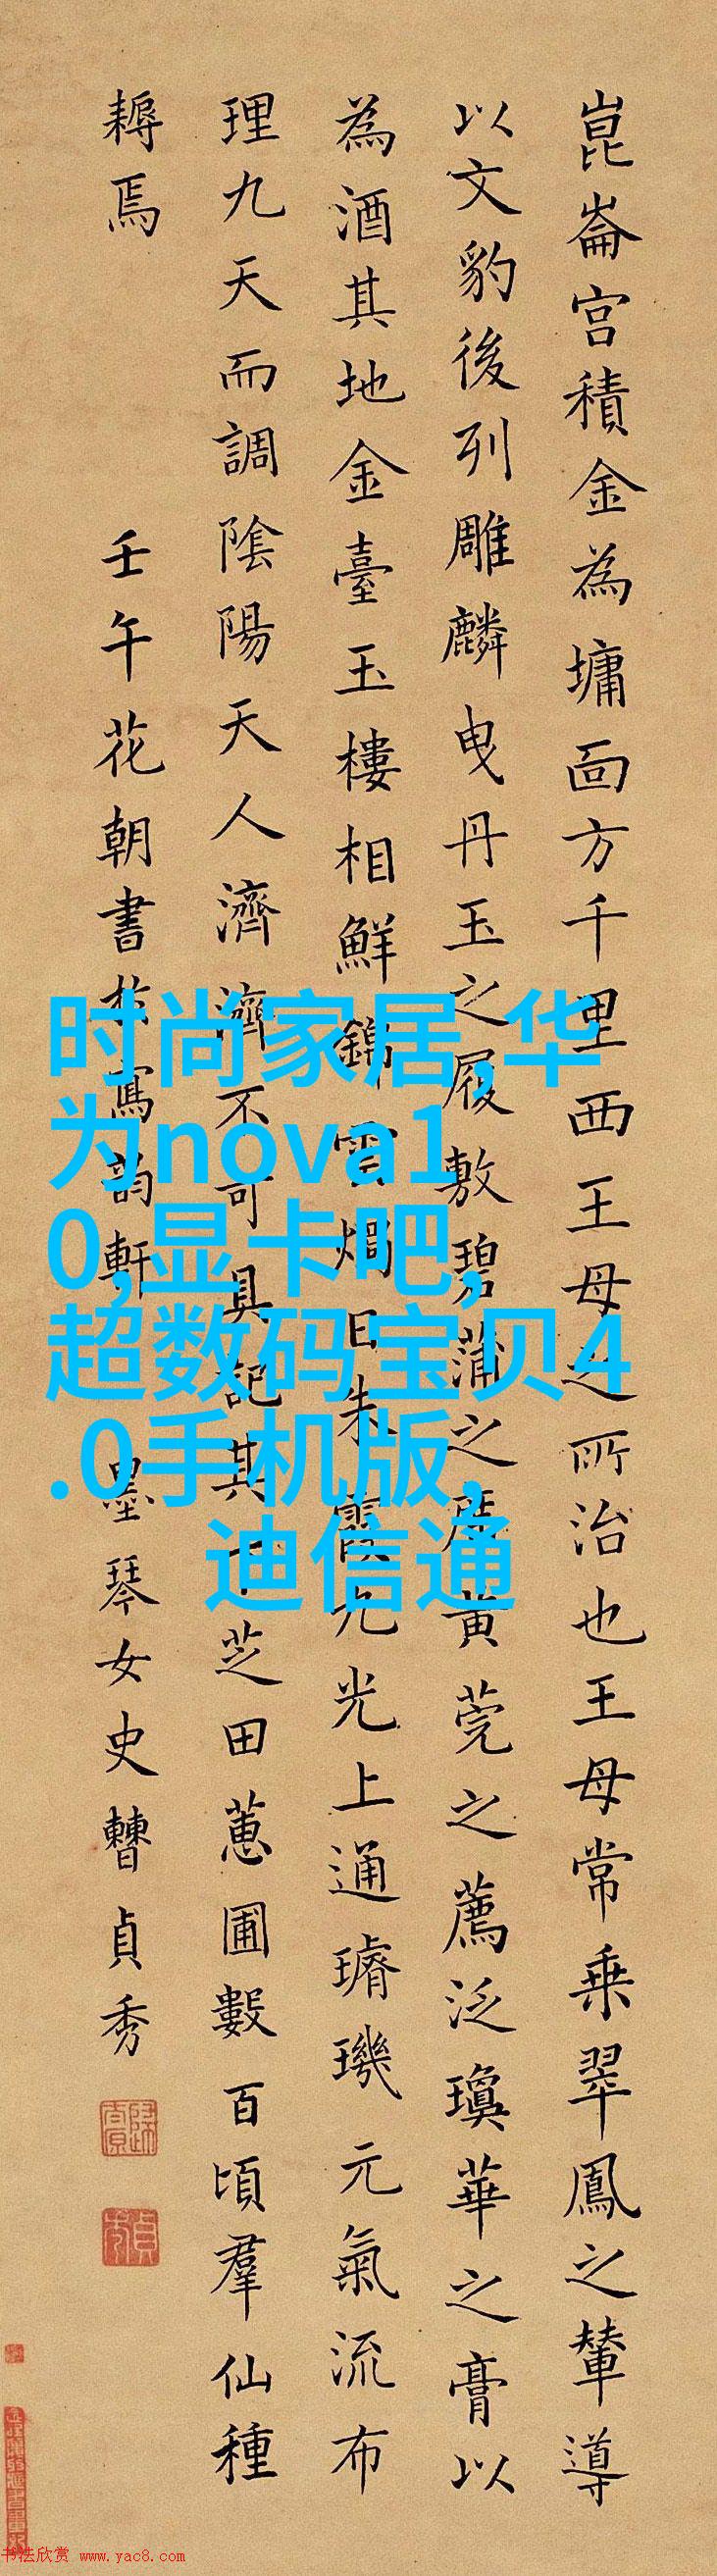 崑崙宫積金為墉面方千里西王母之所治也王母常乗翠鳳之輦導
以文豹後列雕麟曳丹玉之履敷碧蒲之席黄莞之薦泛瓊華之膏以
為酒其地金臺玉樓相鮮錦雲燭日朱霞九光上通璿璣元氣流布
理九天而調陰陽天人濟濟不可具記其下芝田蕙圃數百頃羣仙種
耨焉
壬午花朝書於寫韵軒 墨琴女史曹貞秀
时尚家居,华
为nova1
0,显卡吧,
超数码宝贝4
.0手机版,
迪信通
书法欣赏 www.yac8.com